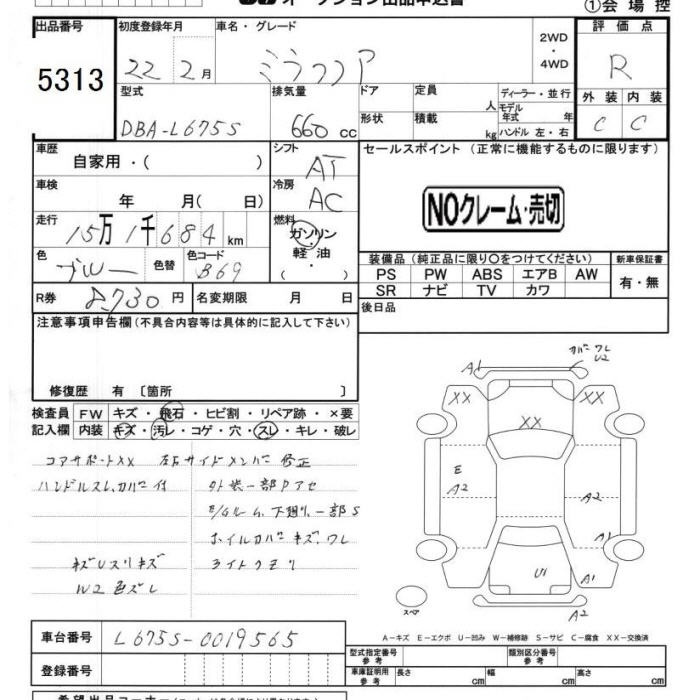 オークション出品申込書 ①会場控
出品番号 初度登録年月 車名・グレード 2WD・4WD 評価点
5313 22年 2月 ミラココア R
型式 排気量 ドア 定員 人 ディーラー・並行 外装 内装
DBA-L675S 660cc 形状 積載 kg モデル年式 年 ハンドル 左・右 C C
車歴 自家用・( ) シフト AT セールスポイント (正常に機能するものに限ります)
車検 年 月( 日) 冷房 AC
NOクレーム・売切
走行 15万1千684km 燃料 ガソリン・軽油・( )
色 ブルー 色替 色コード B69
装備品 (純正品に限り○をつけてください) 新車保証書
PS PW ABS エアB AW 有・無
SR ナビ TV カワ
R券 8,730円 名変期限 月 日
後日品
注意事項申告欄 (不具合内容等は具体的に記入して下さい)
修復歴 有 〔箇所 〕
検査員 FW キズ・飛石・ヒビ割・リペア跡・×要
記入欄 内装 キズ・汚レ・コゲ・穴・スレ・キレ・破レ
コアサポートXX 左右サイドメンバー修正
ハンドルスレ、カバー付 外装一部Pアセ
E/Gルーム、下廻り一部S
ホイルカバーキズ、ワレ
キズUスリキズ ライトクモリ
W2色ズレ
A1 カバーワレ U2
XX XX XX
E A2 A2
A1
U1 A1
A2
スペア
A-キズ E-エクボ U-凹み W-補修跡 S-サビ C-腐食 XX-交換済
車台番号 L675S-0019565
登録番号
型式指定番号 参考 類別区分番号 参考
車庫証明用 参考 長さ cm 幅 cm 高さ cm